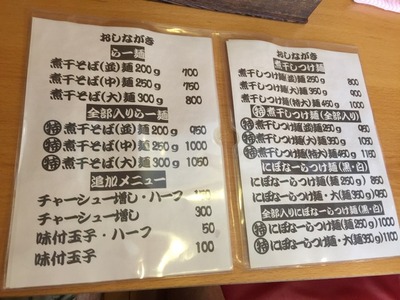 おしながき
らー麺
煮干そば(並)麺200g 700
煮干そば(中)麺250g 750
煮干そば(大)麺300g 800
全部入りらー麺
㊕煮干そば(並)麺200g 950
㊕煮干そば(中)麺250g 1000
㊕煮干そば(大)麺300g 1050
追加メニュー
チャーシュー増し・ハーフ
チャーシュー増し 300
味付玉子・ハーフ 50
味付玉子 100
おしながき
煮干しつけ麺
煮干しつけ麺(並)麺250g 800
煮干しつけ麺(大)麺350g 900
煮干しつけ麺(特大)麺450g 1000
㊕煮干しつけ麺(全部入り)
㊕煮干しつけ麺(並)麺250g 950
㊕煮干しつけ麺(大)麺350g 1050
㊕煮干しつけ麺(特大)麺450g 1150
にぼなーらつけ麺(黒・白)
にぼなーらつけ麺(並)麺250g 850
にぼなーらつけ麺・大(麺350g)950
全部入りにぼなーらつけ麺(黒・白)
㊕にぼなーらつけ麺(並)麺250g 1000
㊕にぼなーらつけ麺・大(麺350g)1100